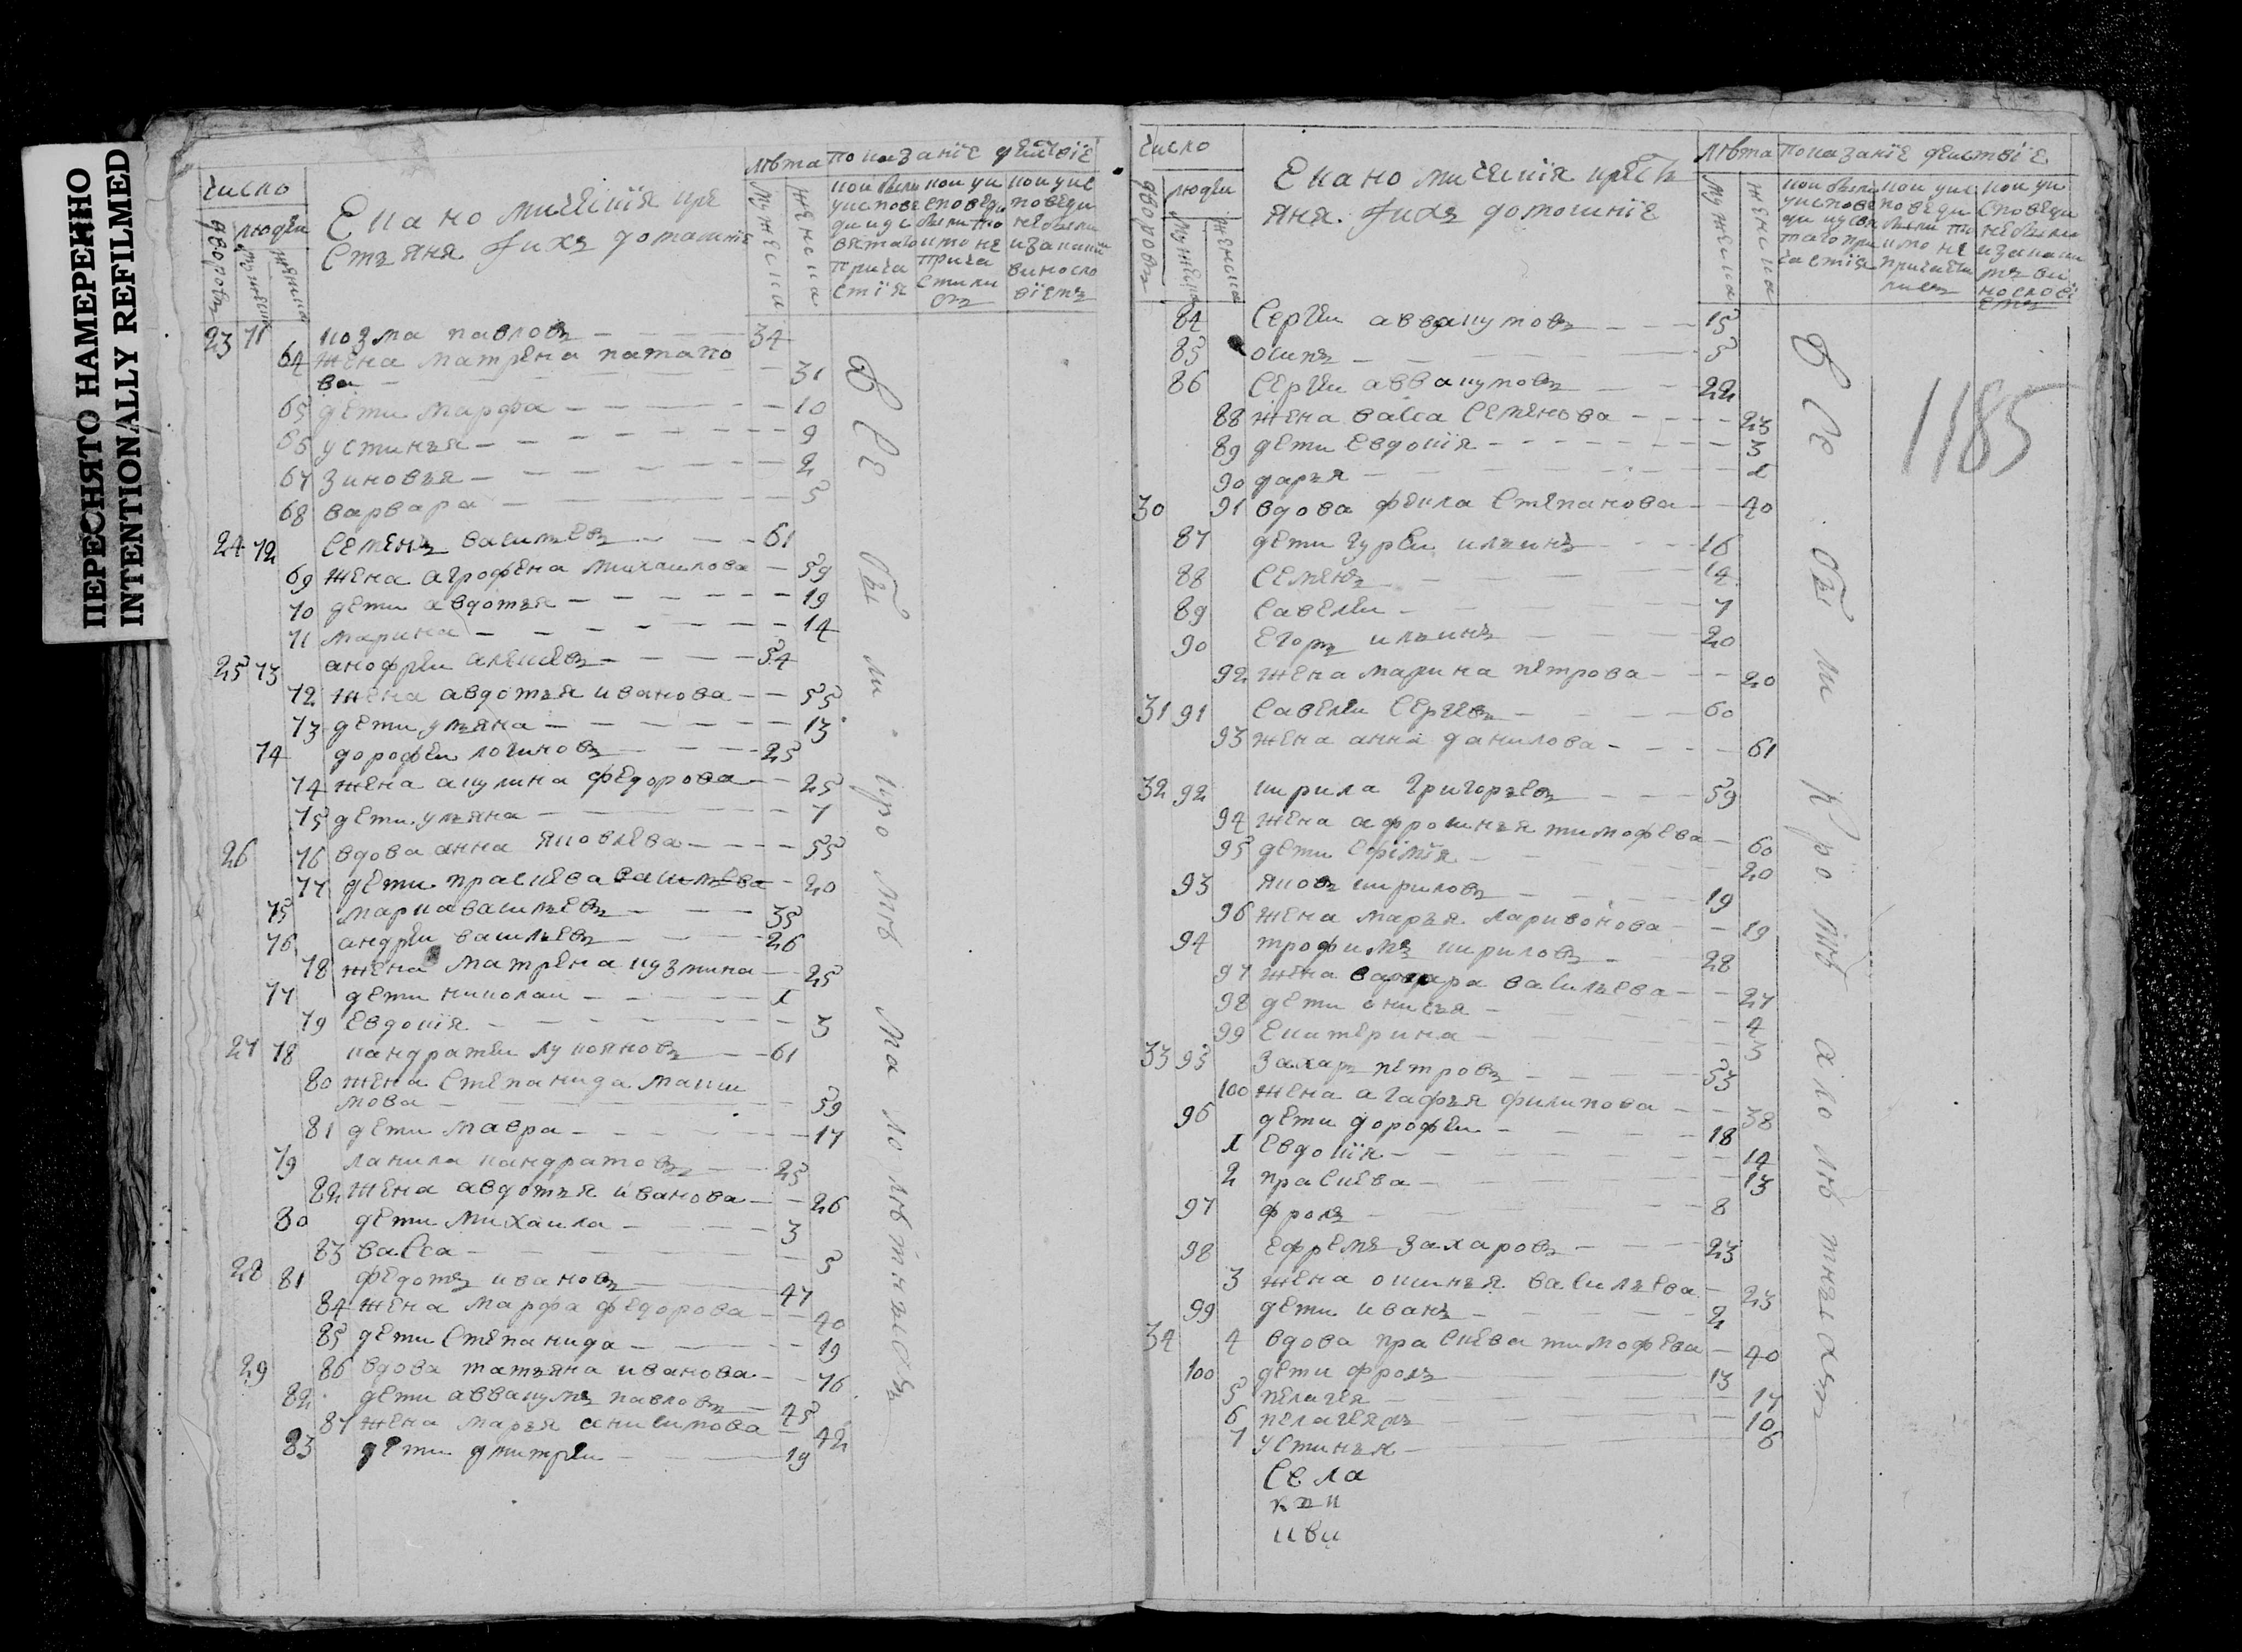 ПЕРЕСНЯТО НАМЕРЕННО
INTENTIONALLY REFILMED
число
дворовъ
людеи
мужеска
женска
Екамомическія кре
стъяня. Iихъ домашніе
лѣта
мужеска
женска
показаніе деиствіе
кои были
у испове
ди и у с
вятаго
прича
стія
кои у и
споведи
были то
кмо не
прича
стили
сь
кои у ис
поведи
не были
и за каким
виносло
віемъ
23 71 козма павловъ 34
64 жена матрена патапо
ва 31
65 дети марфа 10
66 устинья 9
67 зиновья 2
68 варвара 5
24 72 семенъ васильевъ 61
69 жена агрофена михаилова 59
70 дети авдотья 19
71 марина 14
25 73 анофреи алексеевъ 54
72 жена авдотья иванова 55
73 дети ульяна 13
74 дорофеи логиновъ 25
74 жена акулина федорова 25
75 дети ульяна 7
26 76 вдова анна яковлева 55
77 дети праскева васильева 20
75 марка васильевъ 35
76 андреи васильевъ 26
78 жена матрена кузмина 25
77 дети николаи 1
79 евдокія 3
27 78 кандратеи лукояновъ 61
80 жена степанида макси
мова 59
81 дети мавра 17
79 данила кандратовъ 25
82 жена авдотья иванова 26
80 дети михаила 3
83 васса 5
28 81 федотъ ивановъ 47
84 жена марфа федорова 40
85 дети степанида 19
29 86 вдова татьяна иванова 76
82 дети аввакумъ павловъ 45
87 жена марья анисимова 42
83 дети дмитреи 19
все бы ли про мѣ ма ло лѣ тныхъ
число
дворовъ
людеи
мужеска
женска
Екамомическія крестъ
яня. Iихъ домашніе
лѣта
мужеска
женска
показаніе деиствіе
кои были
у испове
ди и у свя
таго при
частія
кои у ис
поведи
были то
кмо не
причасти
лись
кои у и
споведи
не были
и за каки
мъ ви
нослові
емъ
1185
84 сергеи аввакумовъ 15
85 осипъ 5
86 сергеи аввакумовъ 22
88 жена васса семенова 23
89 дети евдокія 3
90 дарья 1
30 91 вдова фекла степанова 40
87 дети гуреи ильинъ 16
88 семенъ 14
89 савелеи 7
90 егоръ ильинъ 20
92 жена марина петрова 20
31 91 савелеи сергеевъ 60
93 жена анна данилова 61
32 92 кирила григорьевъ 59
94 жена афросинья тимофеева 60
95 дети ефімія 20
93 яковъ кириловъ 19
96 жена марья ларивонова 19
94 трофимъ кириловъ 28
97 жена варвара васильева 27
98 дети анисья 4
99 екатерина 3
33 95 захаръ петровъ 53
100 жена агафья филипова 38
96 дети дорофеи 18
1 евдокія 14
2 праскева 13
97 фролъ 8
98 ефремъ захаровъ 23
3 жена оксинья васильева 23
99 дети иванъ 2
34 4 вдова праскева тимофеева 40
100 дети фролъ 13
5 пелагея 17
6 пелагеяжъ 10
7 устинья 6
все бы ли кро мѣ ма ло лѣ тныхъ
села